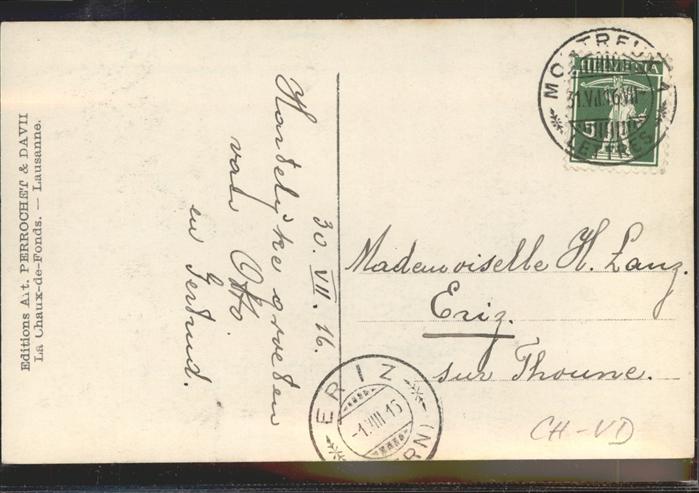 Editions Art. PERROCHET & DAVID
La Chaux-de-Fonds. — Lausanne.
30. VII. 16.
Hartelijke groeten
van Otto
en Gertrud.
MONTREUX A
31.VII.16.VII-
LETTRES
HELVETIA
5
Mademoiselle H. Lanz.
Eriz.
sur Thoune.
ERIZ
-1.VIII.16
(BERN)
CH-VD